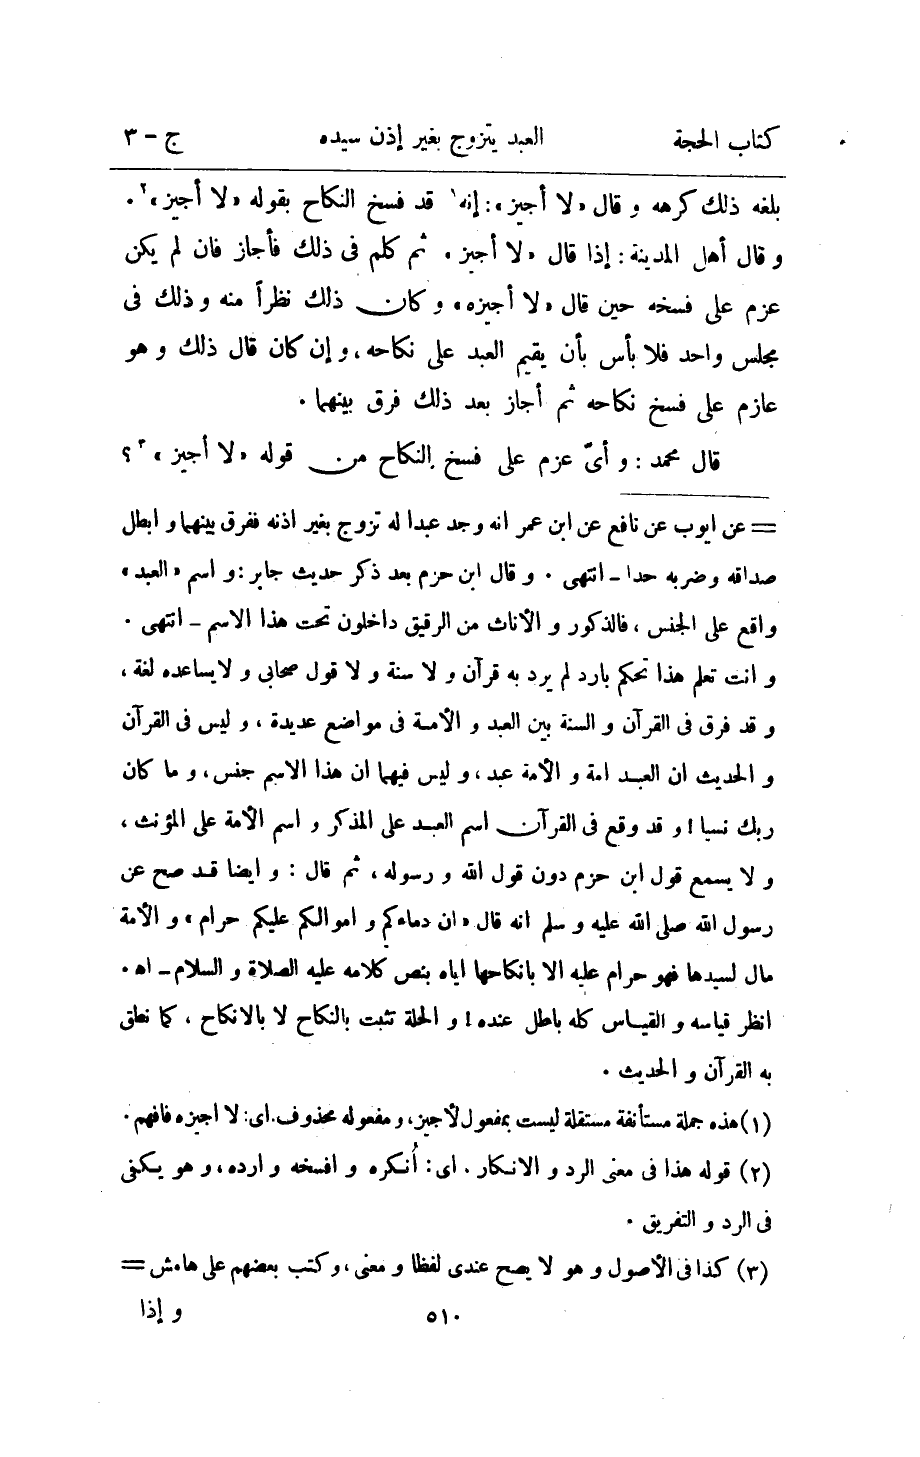 كتاب الحجة العبد يتزوج بغير إذن سيده ج – ٣
بلغه ذلك كرهه و قال «لا أجيز»: إنه١ قد فسخ النكاح بقوله «لا أجيز»٢ .
و قال أهل المدينة: إذا قال «لا أجيز» ثم كلم فى ذلك فأجاز فان لم يكن
عزم على فسخه حين قال «لا أجيزه» و كان ذلك نظراً منه و ذلك فى
مجلس واحد فلا بأس بأن يقيم العبد على نكاحه، و إن كان قال ذلك و هو
عازم على فسخ نكاحه ثم أجاز بعد ذلك فرق بينهما .
قال محمد: و أىّ عزم على فسخ النكاح من قوله «لا أجيز»٣ ؟
= عن ايوب عن نافع عن ابن عمر انه وجد عبدا له تزوج بغير اذنه ففرق بينهما و ابطل
صداقه و ضربه حدا – انتهى . و قال ابن حزم بعد ذكر حديث جابر: و اسم «العبد»
واقع على الجنس، فالذكور و الأناث من الرقيق داخلون تحت هذا الاسم – انتهى .
و انت تعلم هذا تحكم بارد لم يرد به قرآن و لا سنة و لا قول صحابى و لا يساعده لغة،
و قد فرق فى القرآن و السنة بين العبد و الأمة فى مواضع عديدة، و ليس فى القرآن
و الحديث ان العبد امة و الأمة عبد، و ليس فيهما ان هذا الاسم جنس، و ما كان
ربك نسيا! و قد وقع فى القرآن اسم العبد على المذكر و اسم الأمة على المؤنث،
و لا يسمع قول ابن حزم دون قول الله و رسوله، ثم قال: و ايضا قد صح عن
رسول الله صلى الله عليه و سلم انه قال «ان دماءكم و اموالكم عليكم حرام» و الأمة
مال لسيدها فهو حرام عليه الا بانكاحها اياه بنص كلامه عليه الصلاة و السلام – اه .
انظر قياسه و القياس كله باطل عنده! و الحلة تثبت بالنكاح لا بالانكاح، كما نطق
به القرآن و الحديث .
(١) هذه جملة مستأنفة مستقلة ليست بمفعول لأجيز، و مفعوله محذوف. اى: لا اجيزه فافهم .
(٢) قوله هذا فى معنى الرد و الانكار. اى: أُنكره و افسخه و ارده، و هو يكفى
فى الرد و التفريق .
(٣) كذا فى الأصول و هو لا يصح عندى لفظا و معنى، و كتب بعضهم على هامش =
٥١٠ و إذا